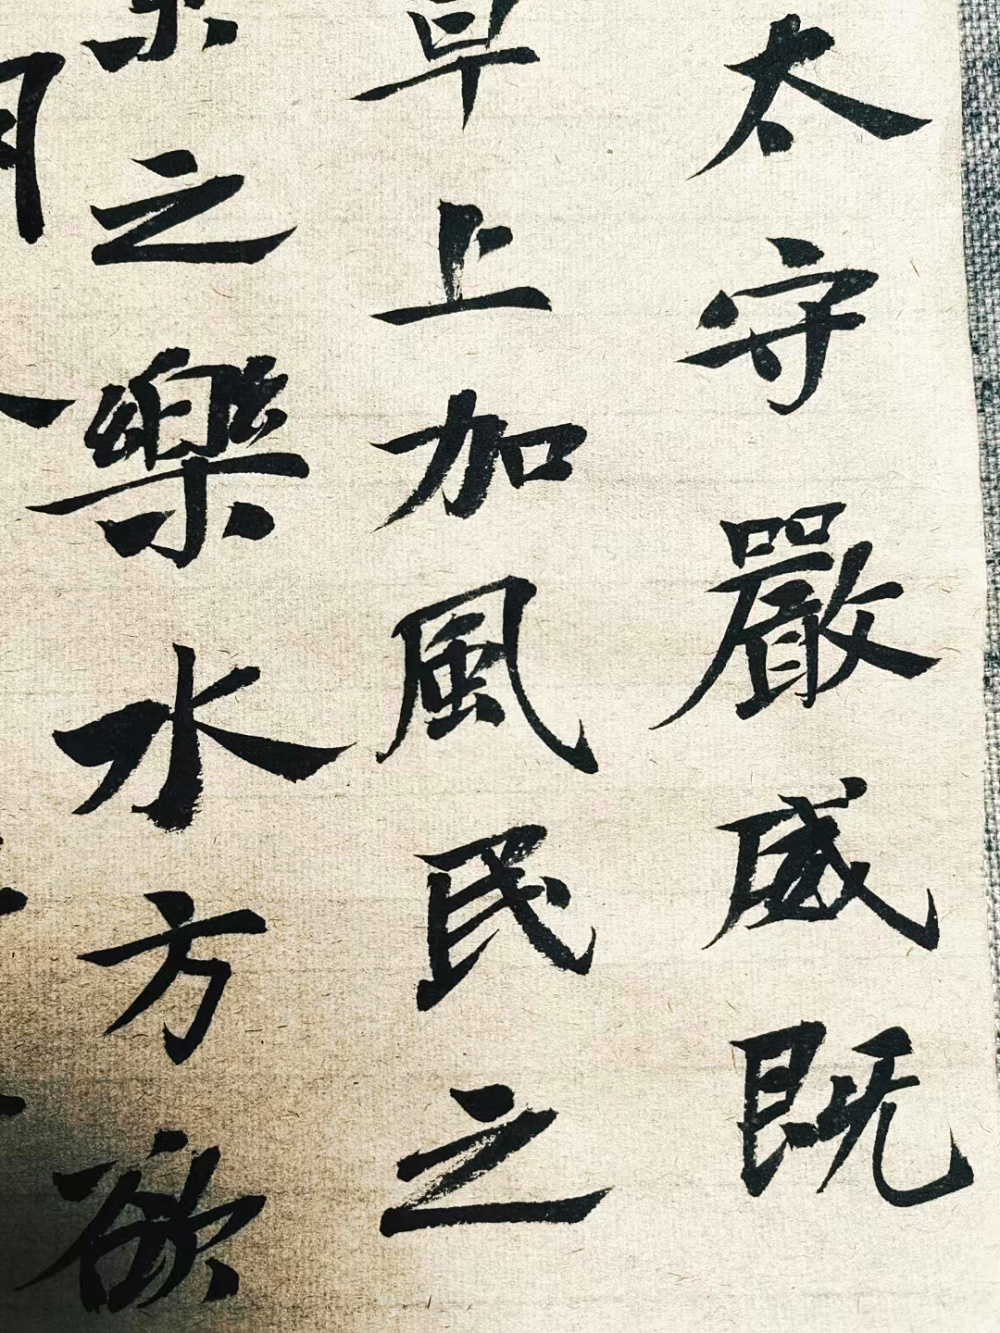 太守嚴威既
草上加風民之
之樂水方欲